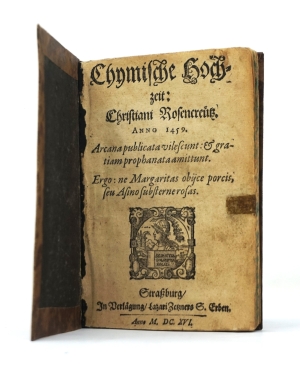 Chymische Hoch-
zeit:
Christiani Rosencreütz.
ANNO 1459.
Arcana publicata vilescunt: & gra-
tiam prophanata amittunt.
Ergo: ne Margaritas objice porcis,
seu Asino substerne rosas.
Straßburg/
In Verlägung/ Lazari Zetzners S. Erben.
Anno M. DC. XVI.